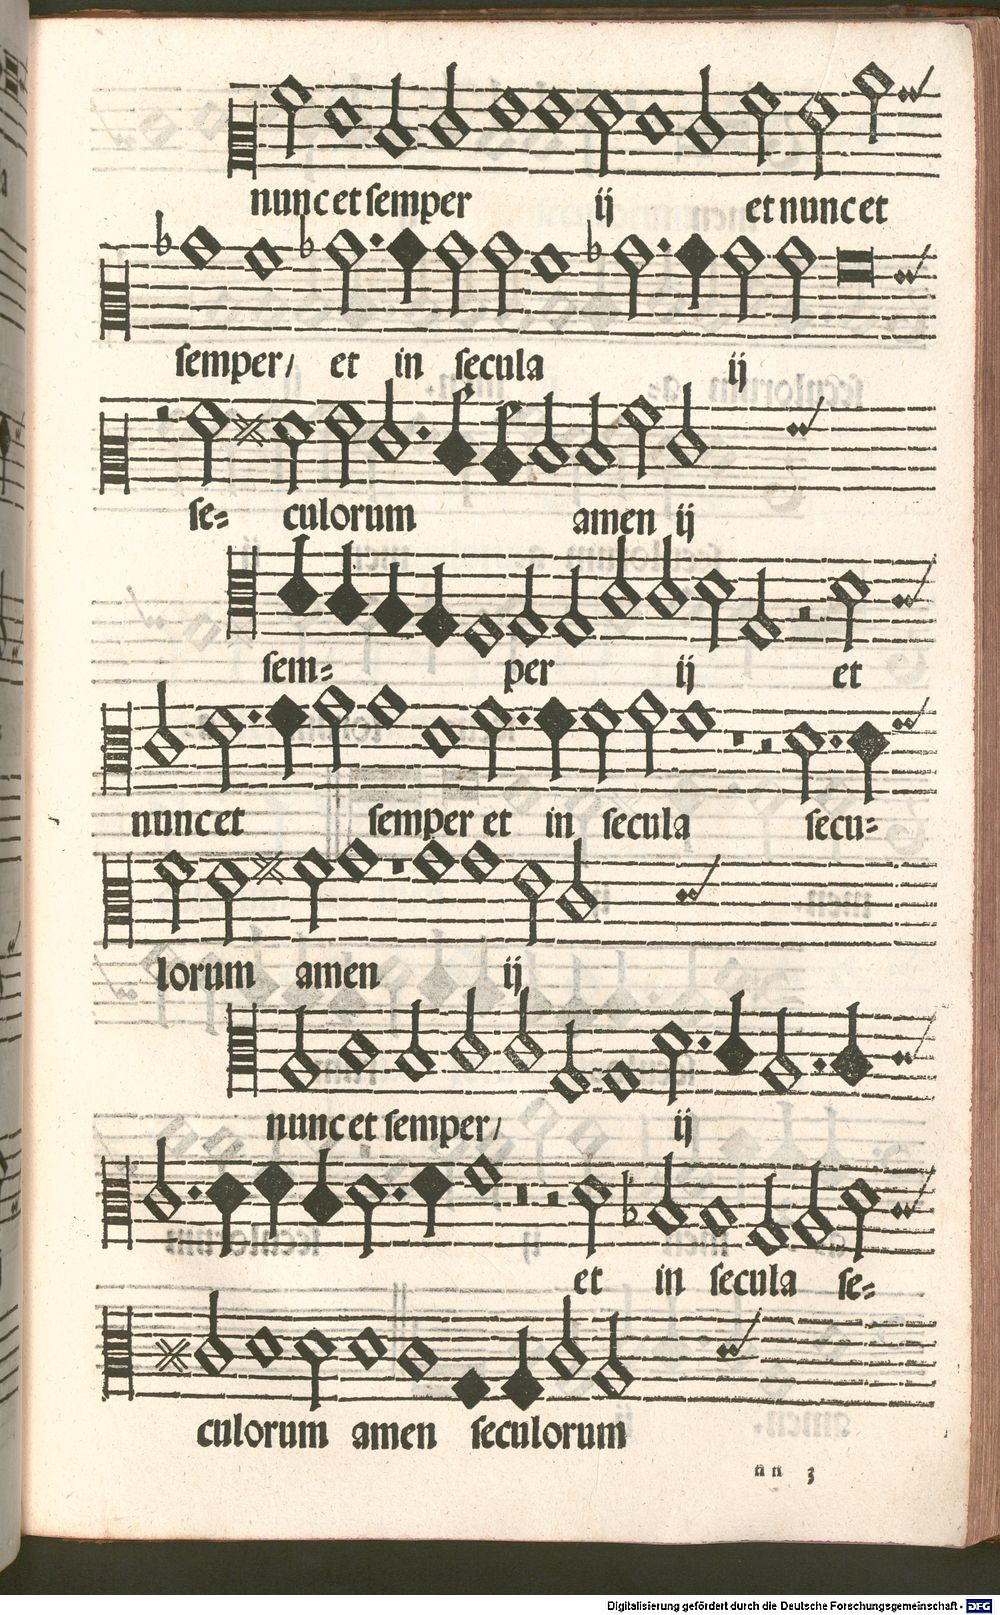 nunc et semper ij et nunc et
semper/ et in secula ij
se= culorum amen ij
sem= per ij et
nunc et semper et in secula secu=
lorum amen ij
nunc et semper/ ij
et in secula se=
culorum amen seculorum
nn 3
Digitalisierung gefördert durch die Deutsche Forschungsgemeinschaft - DFG